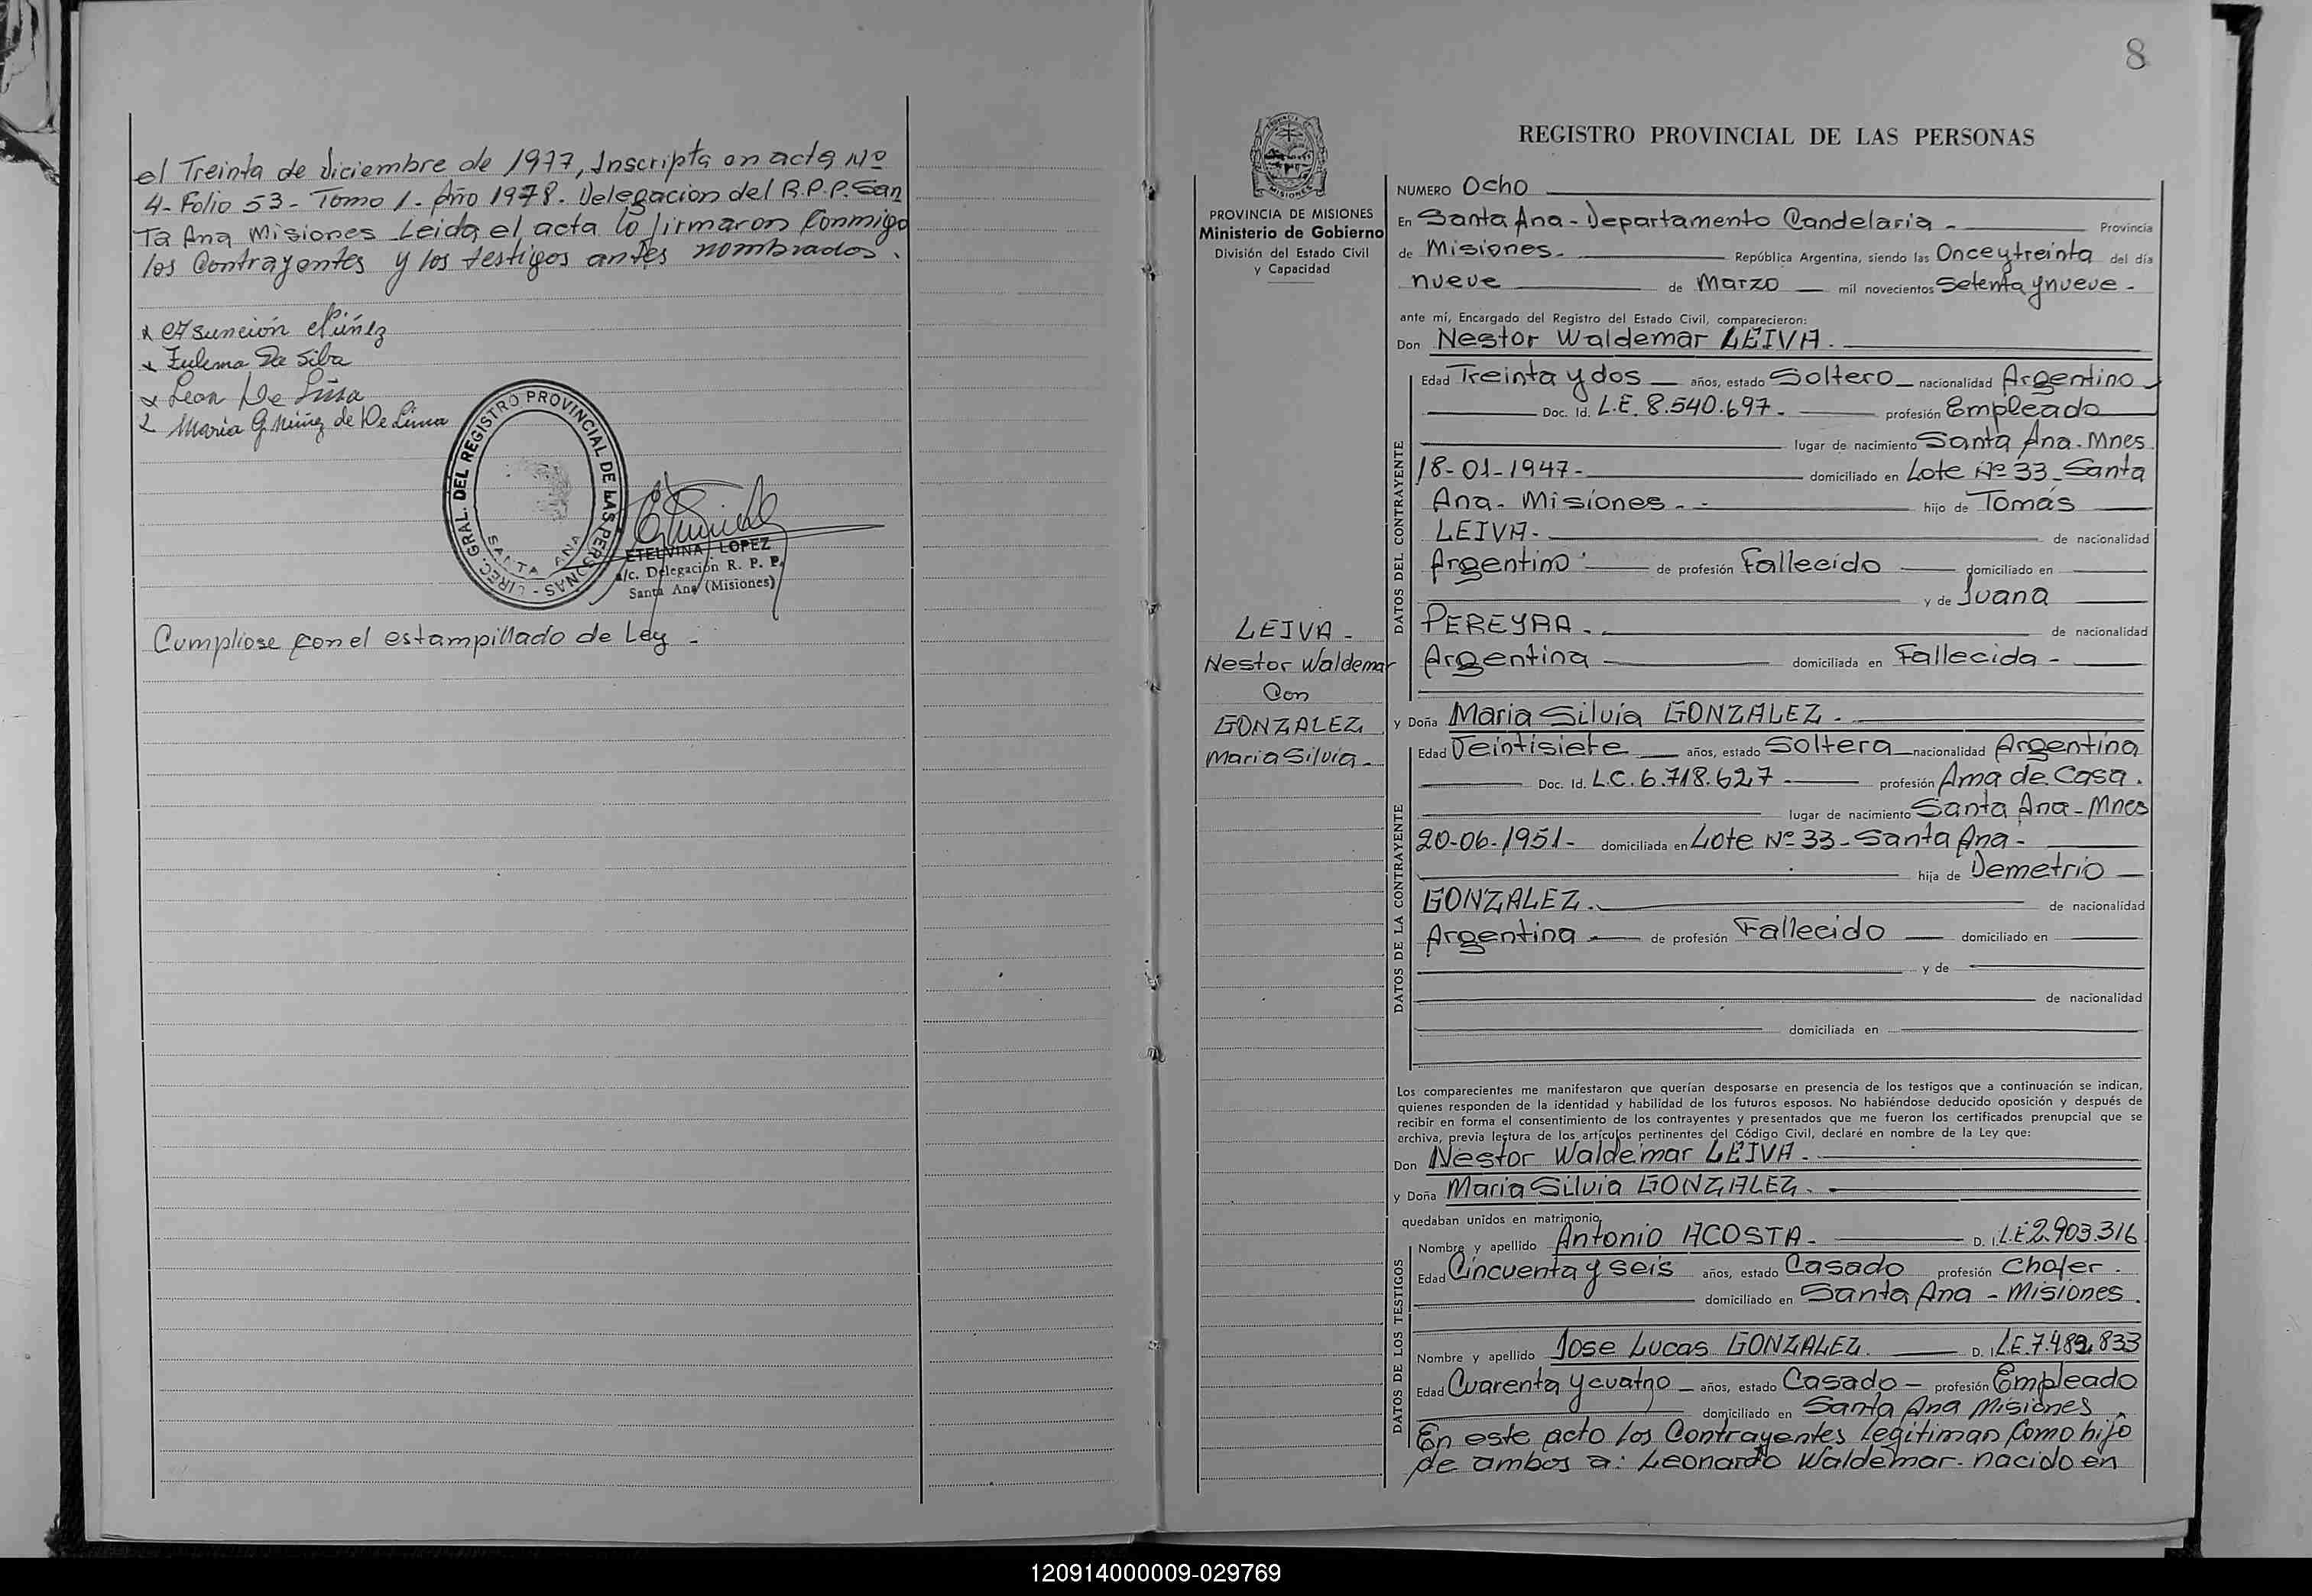 el Treinta de diciembre de 1977, Inscripta en acta Nº
4- Folio 53- Tomo 1- Año 1978. Delegacion del R.P.P. San
Ta Ana Misiones Leida el acta lo firmaron Conmigo
los Contrayentes y los testigos antes nombrados.
x Asunción Núñez
x Zulema Da Silva
x Leon De Lima
María G Núñez de De Lima
DIREC. GRAL. DEL REGISTRO PROVINCIAL DE LAS PERSONAS -
SANTA ANA
ETELVINA LOPEZ
a/c. Delegación R. P. P.
Santa Ana (Misiones)
Cumpliose con el estampillado de Ley -
8
PROVINCIA DE MISIONES
Ministerio de Gobierno
División del Estado Civil
y Capacidad
LEIVA -
Nestor Waldemar
Con
GONZALEZ
Maria Silvia -
REGISTRO PROVINCIAL DE LAS PERSONAS
NUMERO Ocho
En Santa Ana - Departamento Candelaria - Provincia
de Misiones. República Argentina, siendo las Once y treinta del día
nueve de Marzo mil novecientos Setenta y nueve -
ante mí, Encargado del Registro del Estado Civil, comparecieron:
Don Nestor Waldemar LEIVA.
DATOS DEL CONTRAYENTE
Edad Treinta y dos años, estado Soltero nacionalidad Argentino
Doc. Id. L.E. 8.540.697- profesión Empleado
lugar de nacimiento Santa Ana. Mnes.
18-01-1947- domiciliado en Lote Nº 33 - Santa
Ana - Misiones - - hijo de Tomás
LEIVA- de nacionalidad
Argentino de profesión Fallecido domiciliado en
y de Juana
PEREYRA - de nacionalidad
Argentina domiciliada en Fallecida -
y Doña Maria Silvia GONZALEZ -
DATOS DE LA CONTRAYENTE
Edad Veintisiete años, estado Soltera nacionalidad Argentina
Doc. Id. L.C. 6.718.627- profesión Ama de Casa.
lugar de nacimiento Santa Ana - Mnes
20-06-1951- domiciliada en Lote Nº 33 - Santa Ana -
hija de Demetrio
GONZALEZ. de nacionalidad
Argentina de profesión Fallecido domiciliado en
y de
de nacionalidad
domiciliada en
Los comparecientes me manifestaron que querían desposarse en presencia de los testigos que a continuación se indican,
quienes responden de la identidad y habilidad de los futuros esposos. No habiéndose deducido oposición y después de
recibir en forma el consentimiento de los contrayentes y presentados que me fueron los certificados prenupcial que se
archiva, previa lectura de los artículos pertinentes del Código Civil, declaré en nombre de la Ley que:
Don Nestor Waldemar LEIVA -
y Doña Maria Silvia GONZALEZ -
quedaban unidos en matrimonio.
DATOS DE LOS TESTIGOS
Nombre y apellido Antonio ACOSTA - D. I. L.E 2.903.316
Edad Cincuenta y seis años, estado Casado profesión Chofer.
domiciliado en Santa Ana - Misiones.
Nombre y apellido Jose Lucas GONZALEZ. D. I. L.E. 7.482.833
Edad Cuarenta y cuatro años, estado Casado - profesión Empleado
domiciliado en Santa Ana Misiones
En este acto los Contrayentes legitiman Como hijo
de ambos a: Leonardo Waldemar - nacido en
120914000009-029769